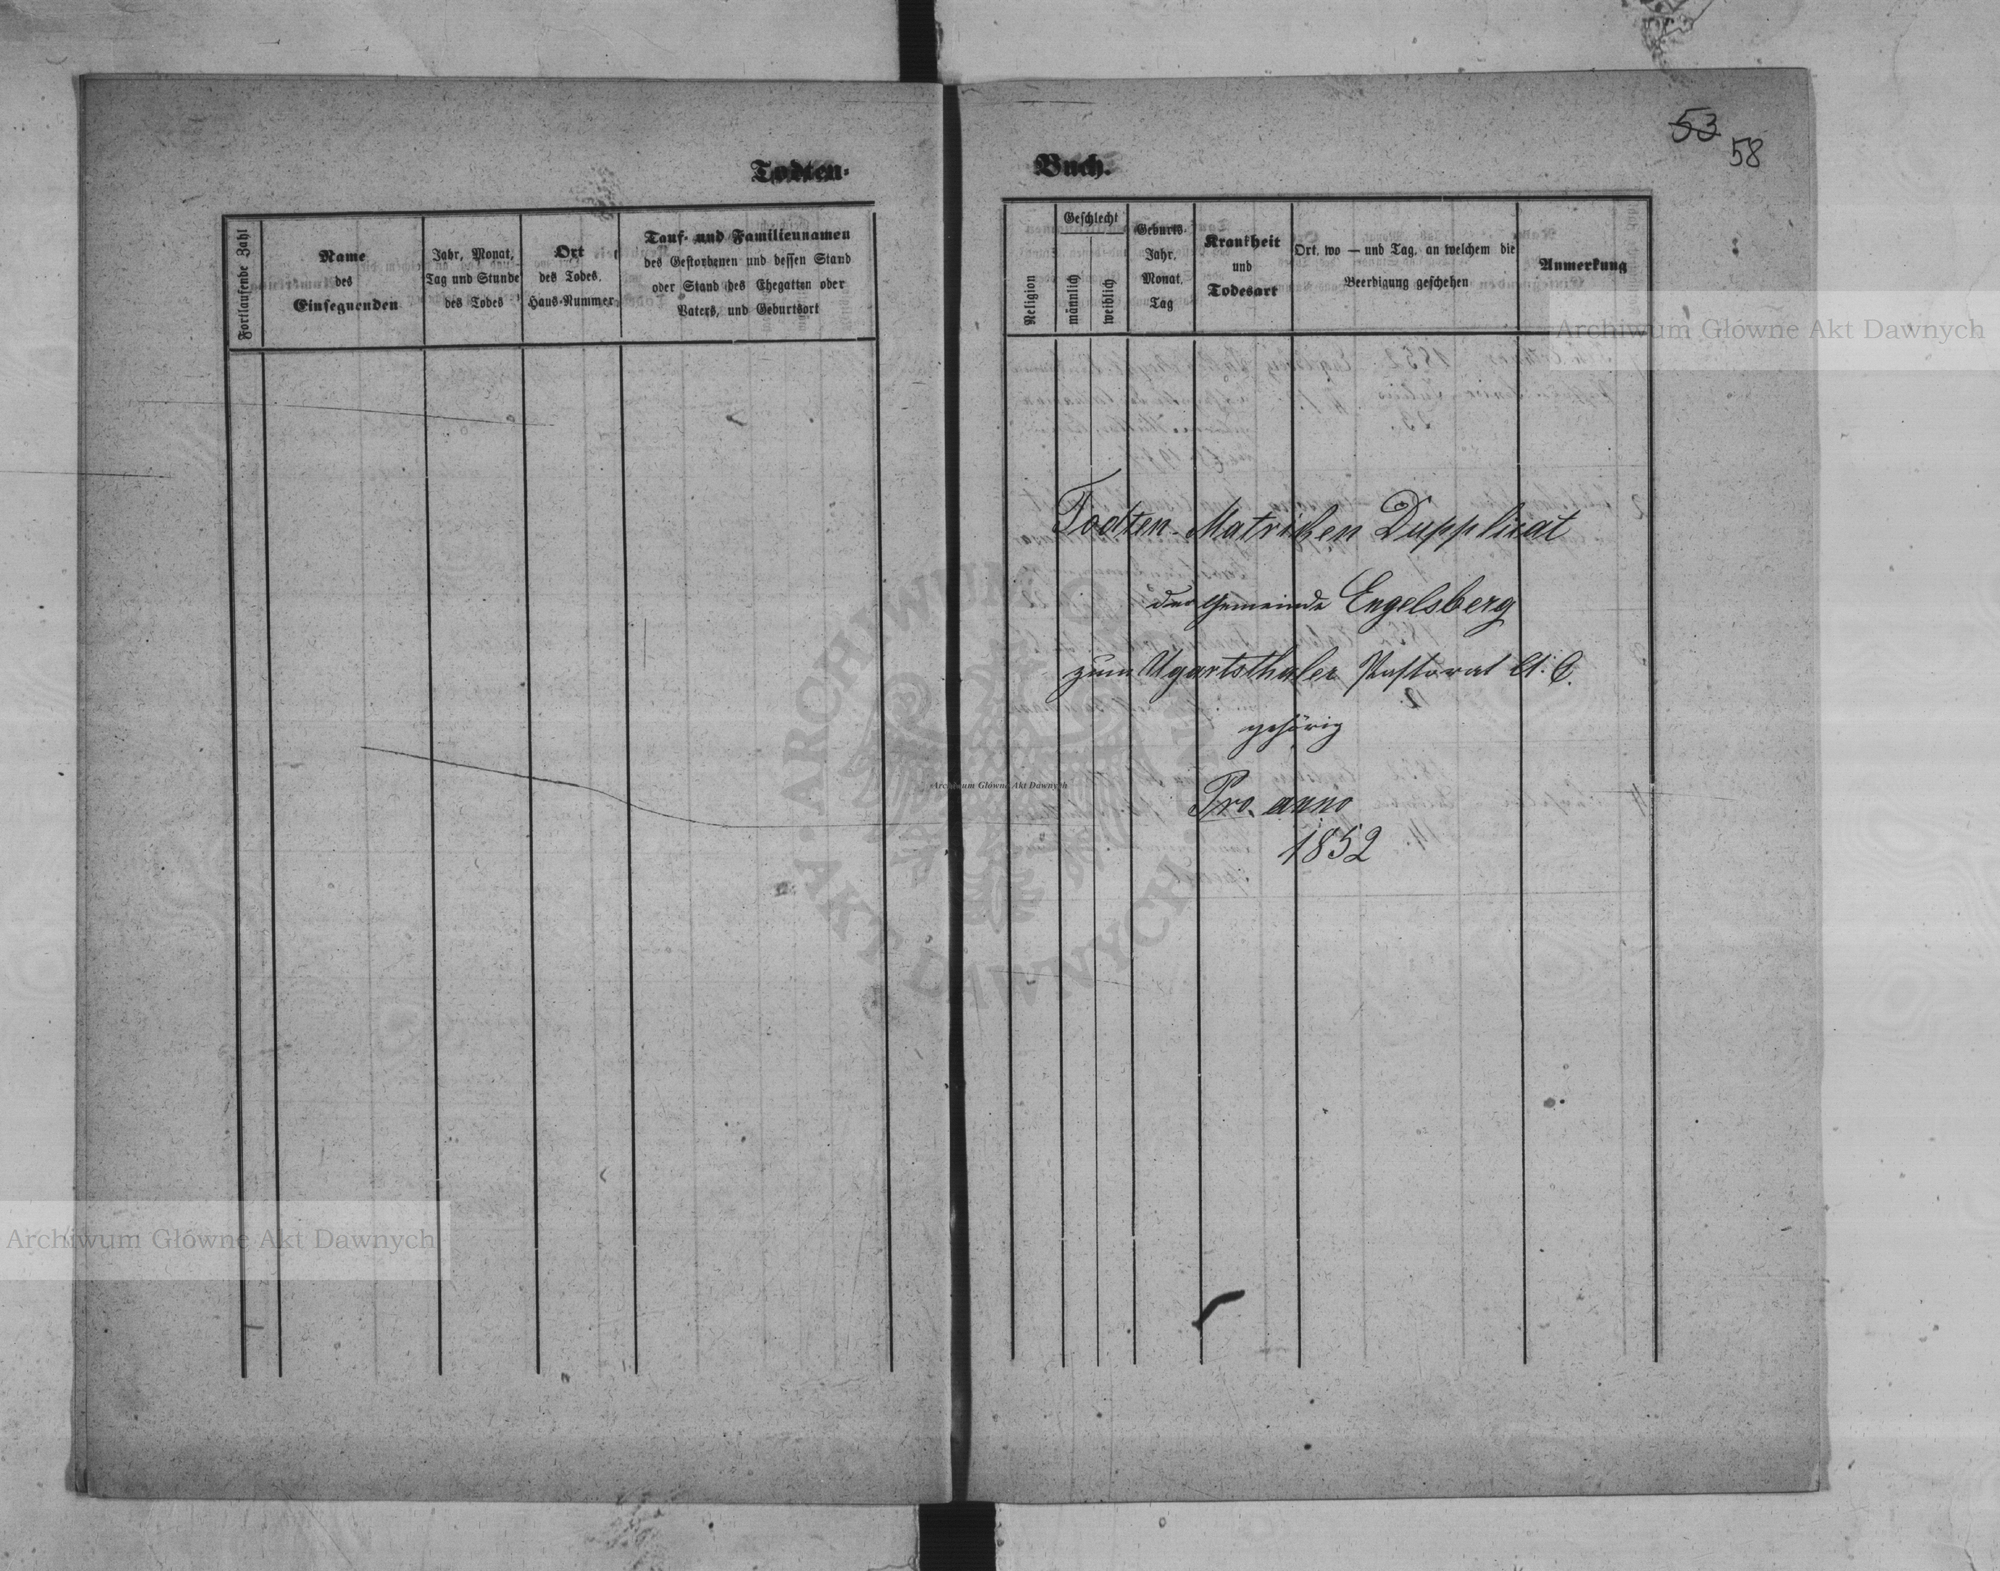 53
58
Todten-
Buch.
Fortlaufende Zahl
Name
des
Einsegnenden
Jahr, Monat,
Tag und Stunde
des Todes
Ort
des Todes.
Haus-Nummer
Tauf- und Familiennamen
des Gestorbenen und dessen Stand
oder Stand des Ehegatten oder
Vaters, und Geburtsort
Religion
Geschlecht
männlich
weiblich
Geburts-
Jahr.
Monat.
Tag
Krankheit
und
Todesart
Ort, wo — und Tag, an welchem die
Beerdigung geschehen
Anmerkung
Todten-Matriken Dupplicat
der Gemeinde Engelsberg
zum Ugartsthaler Pastorat A. C.
gehörig
Pro anno
1852
Archiwum Główne Akt Dawnych
Archiwum Główne Akt Dawnych
Archiwum Główne Akt Dawnych
ARCHIWUM GŁÓWNE
AKT DAWNYCH